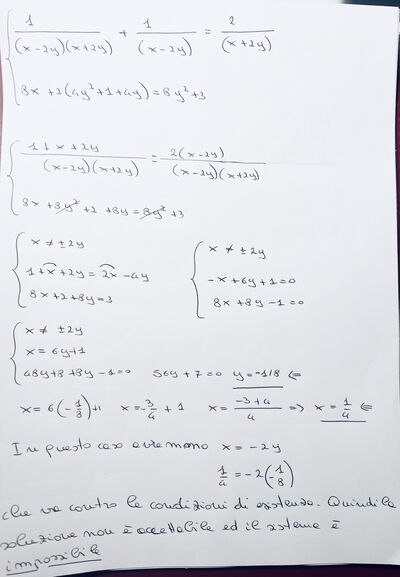 1/((x-2y)(x+2y)) + 1/(x-2y) = 2/(x+2y)
8x + 2(4y²+1+4y) = 8y²+3
(1+x+2y)/((x-2y)(x+2y)) = 2(x-2y)/((x-2y)(x+2y))
8x + 8y² + 2 + 8y = 8y² + 3
x ≠ ±2y
1+x+2y = 2x-4y
8x+2+8y=3
x ≠ ±2y
-x+6y+1=0
8x+8y-1=0
x ≠ ±2y
x = 6y+1
48y+8+8y-1=0 56y+7=0 y=-1/8 ⇐
x = 6(-1/8)+1 x = -3/4 + 1 x = (-3+4)/4 => x = 1/4 ⇐
In questo caso avremmo x = -2y
1/4 = -2(-1/8)
che va contro le condizioni di esistenza. Quindi la
soluzione non è accettabile ed il sistema è
impossibile